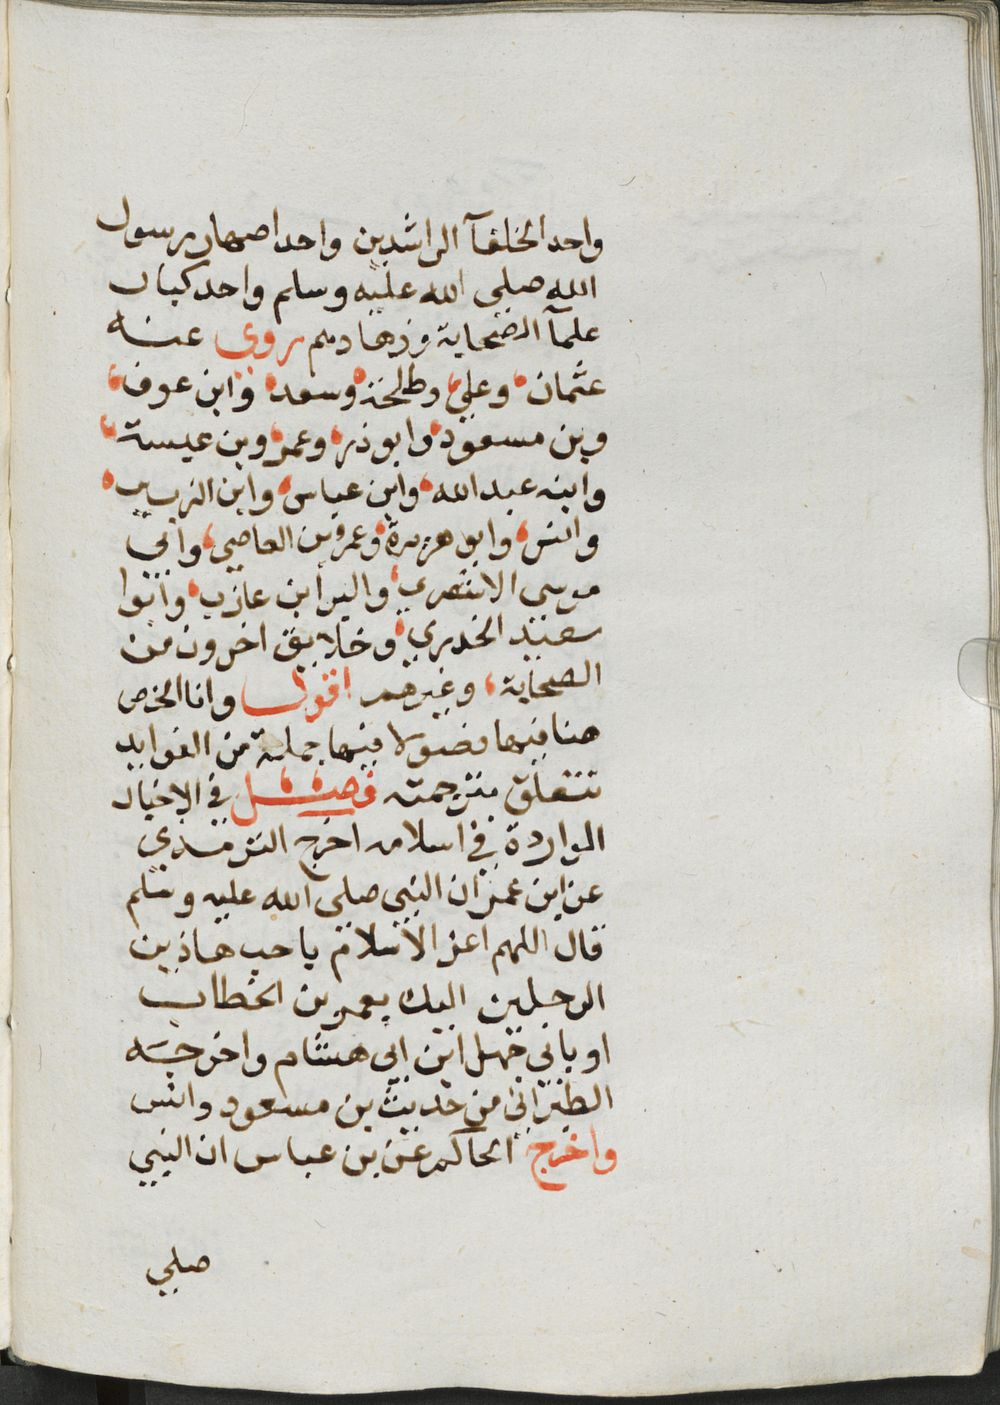 واحد الخلفآ الراشدين واحد اصهار رسول
الله صلي الله عليه وسلم واحد كبار
علمآ الصحابة وزهادهم روي عنه
عثمان وعلي وطلحة وسعد وابن عوف
وبن مسعود وابو ذر وعمر وبن عبسة
وابنه عبد الله وابن عباس وابن الزبير
وانس وابو هريرة وعمرو بن العاصي وابي
موسي الاشعري والبرا بن عازب وابوا
سعيد الخدري وخلايق اخرون من
الصحابة وغيرهم اقول وانا الخص
هنا فيها فصولا فيها جملة من الفوايد
تتعلق بترجمته فصل في الاخبار
الواردة في اسلامه اخرج الترمذي
عن ابن عمر ان النبي صلي الله عليه وسلم
قال اللهم اعز الاسلام باحب هاذين
الرجلين اليك بعمر بن الخطاب
او بابي جهل ابن ابي هشام واخرجه
الطبراني من حديث بن مسعود وانس
واخرج الحاكم عن بن عباس ان النبي
صلي